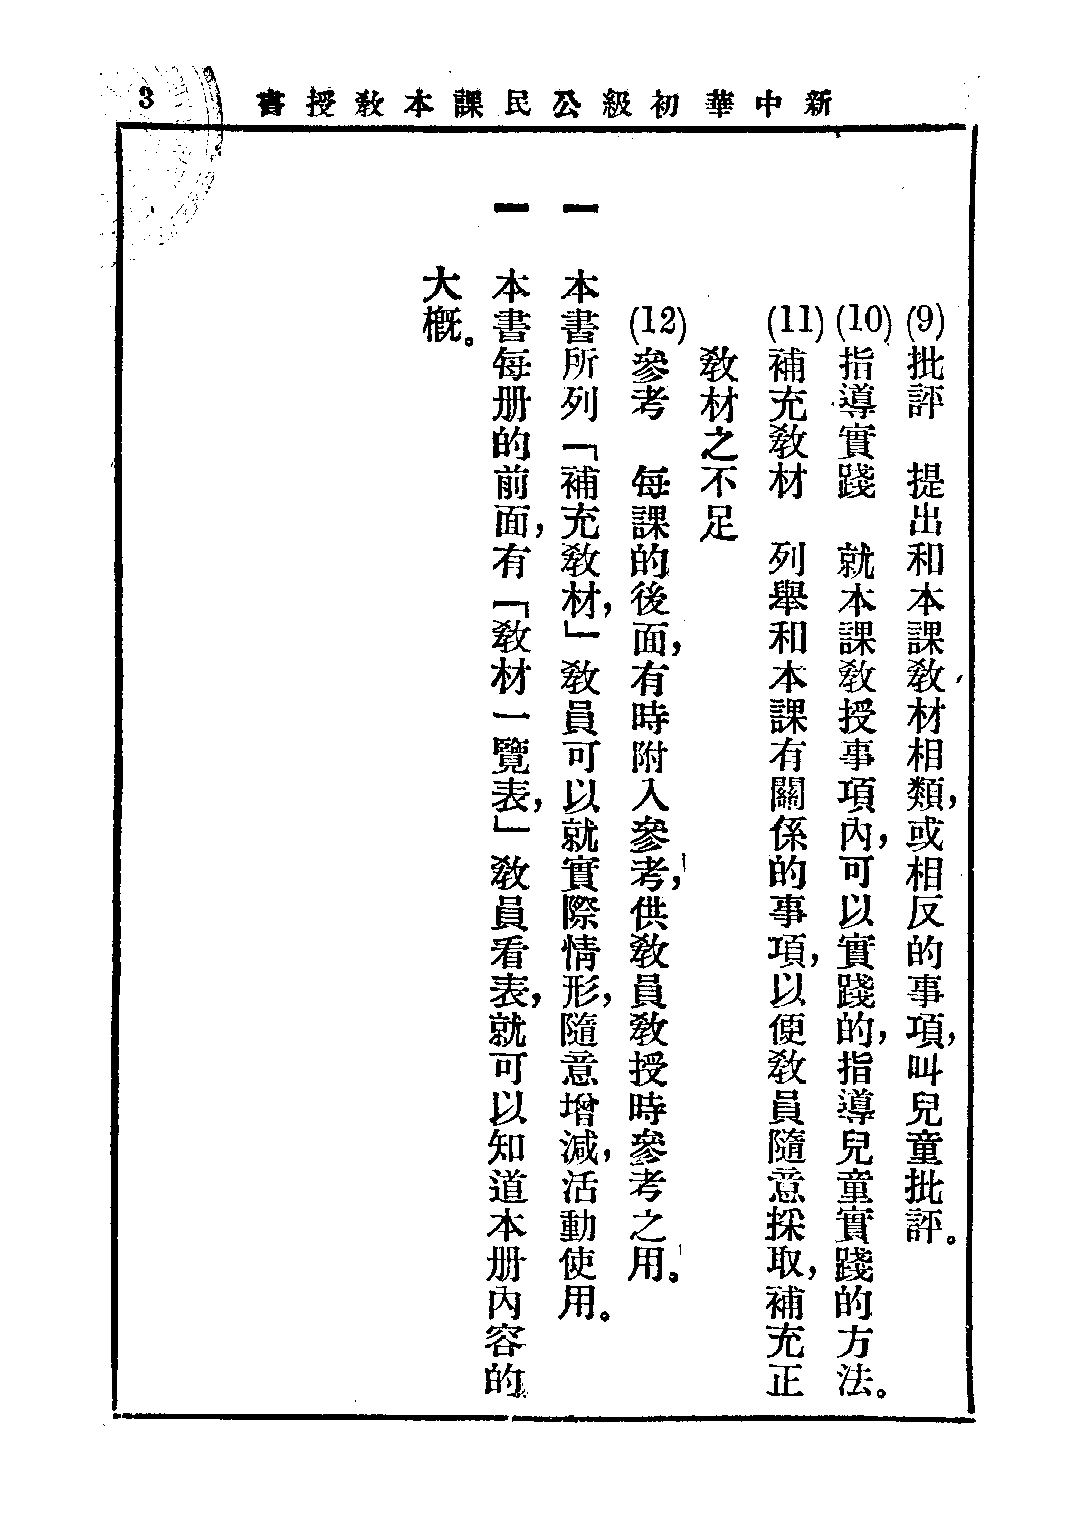 新中華初級公民課本教授書 3
(9)批評　提出和本課教材相類,或相反的事項,叫兒童批評。
(10)指導實踐　就本課教授事項內,可以實踐的,指導兒童實踐的方法。
(11)補充教材　列舉和本課有關係的事項,以便教員隨意採取,補充正
教材之不足
(12)參考　每課的後面,有時附入參考,供教員教授時參考之用。
一　本書所列「補充教材,」教員可以就實際情形,隨意增減,活動使用。
一　本書每册的前面,有「教材一覽表,」教員看表,就可以知道本册內容的
大概。